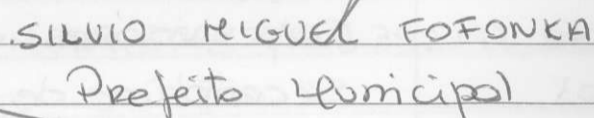 .SILVIO MIGUEL FOFONKA
Prefeito Municipal